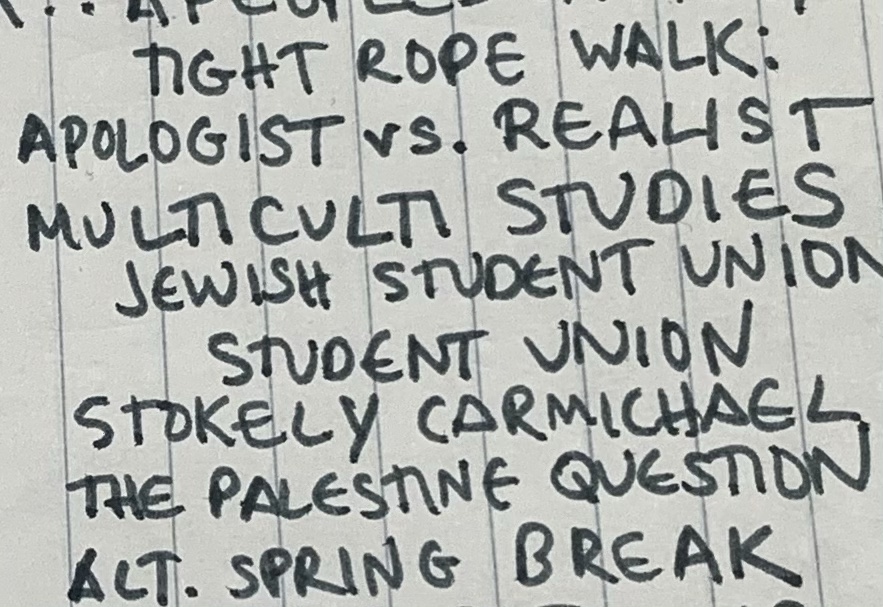 TIGHT ROPE WALK:
APOLOGIST vs. REALIST
MULTI CULTI STUDIES
JEWISH STUDENT UNION
STUDENT UNION
STOKELY CARMICHAEL
THE PALESTINE QUESTION
ALT. SPRING BREAK